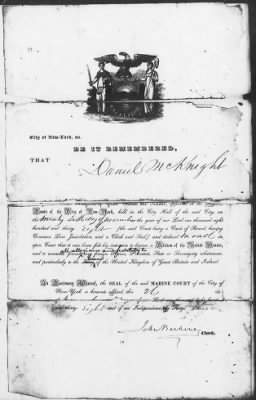 City of New-York, ss.
BE IT REMEMBERED,
THAT Daniel McKnight
Court of the City of New-York, held in the City Hall of the said City on
the day of in the year of our Lord one thousand eight
hundred and thirty eight (the said Court being a Court of Record having
Common Law Jurisdiction, and a Clerk and Seal) and declared on oath in
open Court that it was bona fide his intention to become a Citizen of the United States,
and to renounce forever all allegiance and fidelity to any foreign Prince, Potentate, State or Sovereignty whatsoever,
and particularly to the Queen of the United Kingdom of Great Britain and Ireland.
In Testimony Whereof, the SEAL of the said MARINE COURT of the City of
New-York is hereunto affixed, this
and thirty eight and of our Independence the Sixty
John Barberie, Clerk.